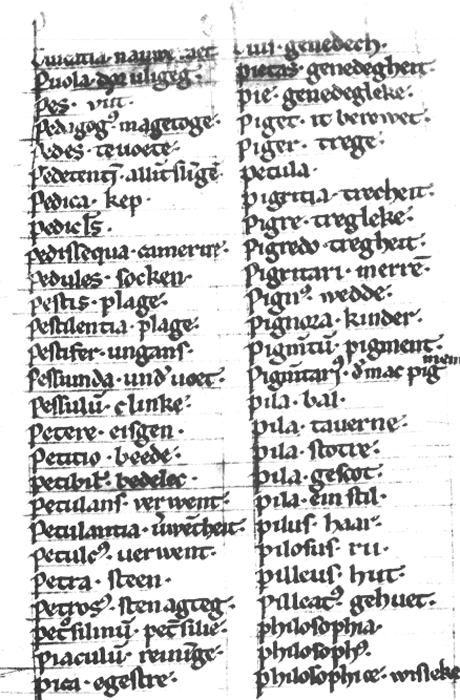 nauwe
Puola
Pes · vut
Pedagogꝰ magetoge·
Pedes · teuoete·
Pedetentī
Pedica · kep·
Pedissequa · camerire·
Pedules · socken·
Pestis · plage·
Pestilentia · plage·
Pestifer · ungans·
Pessunda · und' uoet·
Pessulū · clinke·
Petere · eisgen·
Petitio · beede·
petibil' · bedelec·
Petulans · verwent·
Petulantia · v'wētheit·
Petulcꝰ · uerwent·
Petra · steen·
Petrosꝰ · stenagteg·
petꝰsilinū · petꝰsilie·
Piaculū · reinīge·
Pica · egestre·
genedech·
pietas · genedegheit·
Pie · genedegleke·
Piget · it berowet·
Piger · trege·
petula·
Pigritia · trecheit·
Pigre · tregleke·
Pigredo · tregheit·
Pigritari · merrē·
Pignꝰ · wedde·
Pignora · kinder·
Pigmētū · pigment·
Pigmētariꝰ · d' mac pigment
pila · bal·
Pila · tauerne·
Pila · stotte·
Pila · gescot·
Pila · ein stil·
Pilus · haar·
Pilosus · ru·
Pilleus · hut·
Pilleatꝰ · gehuet·
Philosophia·
philosophꝰ·
Philosophice · wisleke